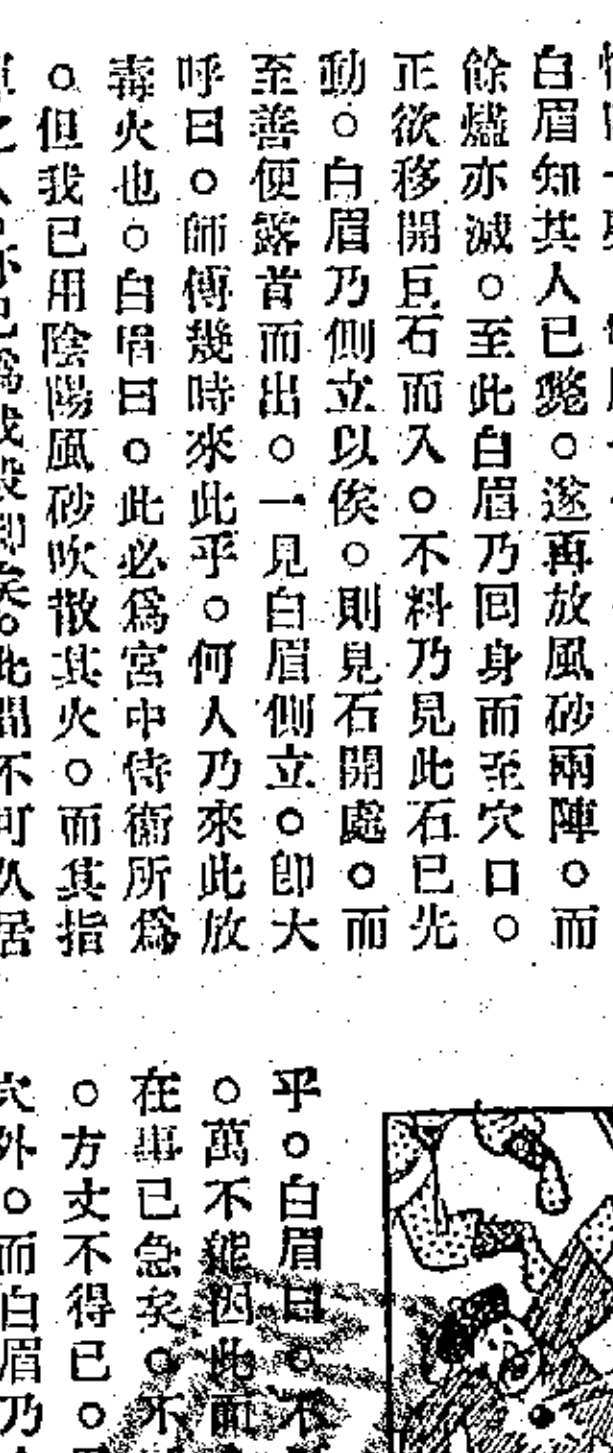 白眉知其人已斃。遂再放風砂兩陣。而
餘燼亦滅。至此白眉乃囘身而至穴口。
正欲移開巨石而入。不料乃見此石已先
動。白眉乃側立以俟。則見石開處。而
至善便露首而出。一見白眉側立。卽大
呼曰。師傅幾時來此乎。何人乃來此放
毒火也。白眉曰。此必爲宮中侍衞所爲
。但我已用陰陽風砂吹散其火。而其指
此間不可久居
乎。白眉曰。不
。萬不能因此而
在事已急矣。不
。方丈不得已。
穴外。而白眉乃